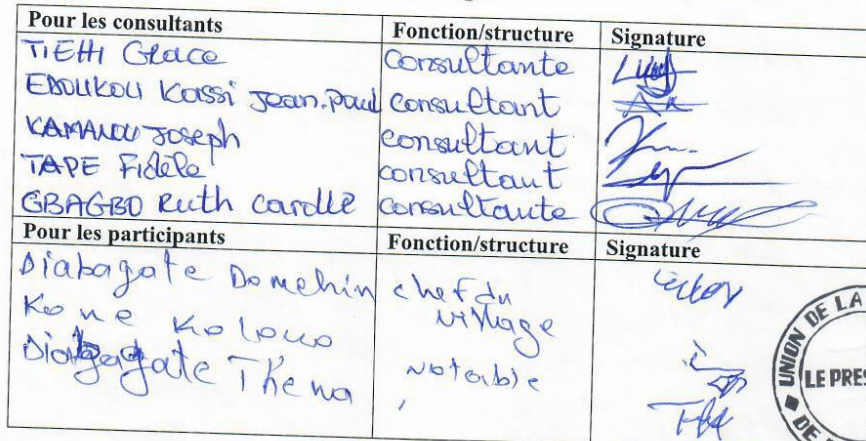 Pour les consultants Fonction/structure Signature
TIEHI Grace Consultante
EDOUKOU Kassi Jean.Paul consultant
KAMANOU Joseph consultant
TAPE Fidèle consultant
GBAGBO Ruth Carolle consultante
Pour les participants Fonction/structure Signature
Diabagate Domehin chef du village
Kone Kolouo
Diabagate Thena Notable
UNION DE LA
LE PRES
DE